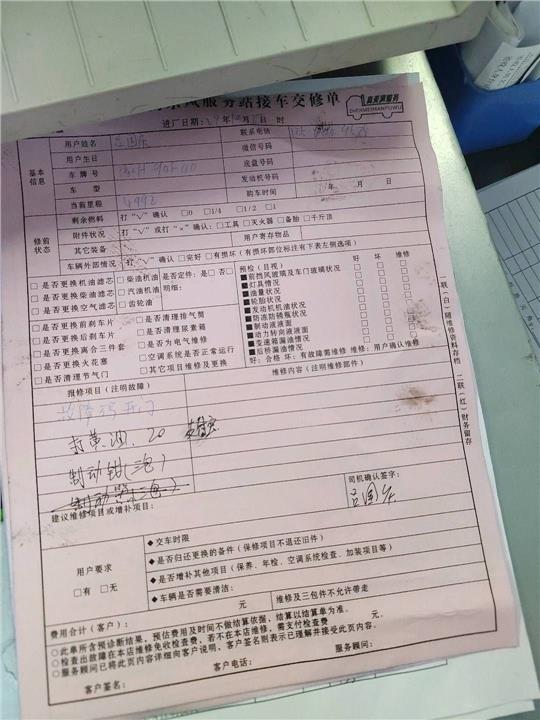 东风服务站接车交修单
真英满服务
ZHENXEIMANFUWU
进厂日期: 年 月 日 时
基本信息
用户姓名 吕国庆 联系电话
用户生日 微信号码
车牌号 底盘号码
车 型 发动机号码
当前里程 4992 购车时间 年 月 日
修前状态
剩余燃料 打“√”确认 □0 □1/4 □1/2 □1
附件状况 打“√”或打“×”确认:□工具 □灭火器 □备胎 □千斤顶
其它装备 用户寄存物品
车辆外部情况 打“√”确认 □完好 □有损坏(有损坏部位标注有下表左侧选项)
□是否更换机油滤芯 □柴油机油 是否定件:是 □否□
□是否更换柴油滤芯 □汽油机油 明细:
□是否更换空气滤芯 □齿轮油
□是否更换前刹车片 □是否清理排气筒
□是否更换后刹车片 □是否清理尿素箱
□是否更换离合三件套 □是否为电气维修
□是否更换火花塞 □空调系统是否正常运行
□是否清理节气门 □其它项目维修及更换
预检(目视) 好 坏 维修
■前挡风玻璃及车门玻璃状况 □ □ □
■灯具情况 □ □ □
■油量状况 □ □ □
■轮胎状况 □ □ □
■发动机机油状况 □ □ □
■防冻防锈瓶状况 □ □ □
■制动液液面 □ □ □
■动力转向液液面 □ □ □
■变速箱漏油情况 □ □ □
■后桥漏油情况 □ □ □
好:合格 坏:有故障需维修 维修:用户确认维修
报修项目(注明故障) 维修内容(注明维修部件)
打黄油. 20
制动钳(三包)
建议维修项目或增补项目:
司机确认签字:
吕国庆
用户要求
□有 □无
◆交车时限
◆是否归还更换的备件(保修项目不退还旧件)
◆是否增补其他项目(保养、年检、空调系统检查、加装项目等)
◆车辆是否需要清洁:
元 维修及三包件不允许带走
费用合计(客户): 元。
○此单所含预诊断结果,预估费用及时间不做结算依据,结算以结算单为准。
○检查出故障在本店维修免收检查费,若不在本店维修,需支付检查费
○服务顾问已将此页内容详细向客户说明,客户签名则表示已理解并接受此页内容。
客户签名: 客户电话: 服务顾问:
一联(白)随维修资料存档 二联(红)财务留存